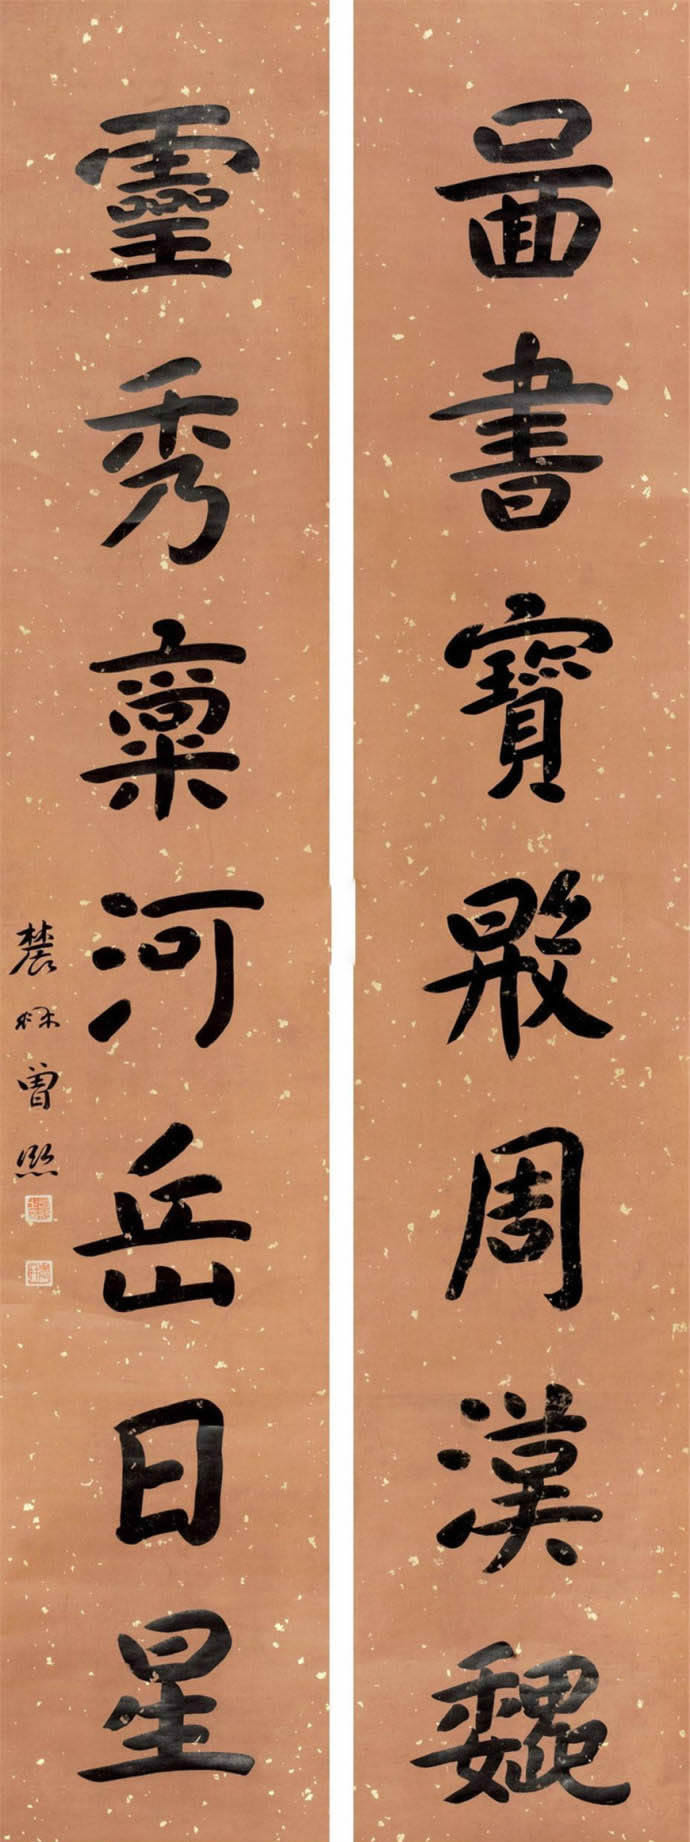 啚書寶殷周漢魏
靈秀稟河岳日星
辳髯曾熙